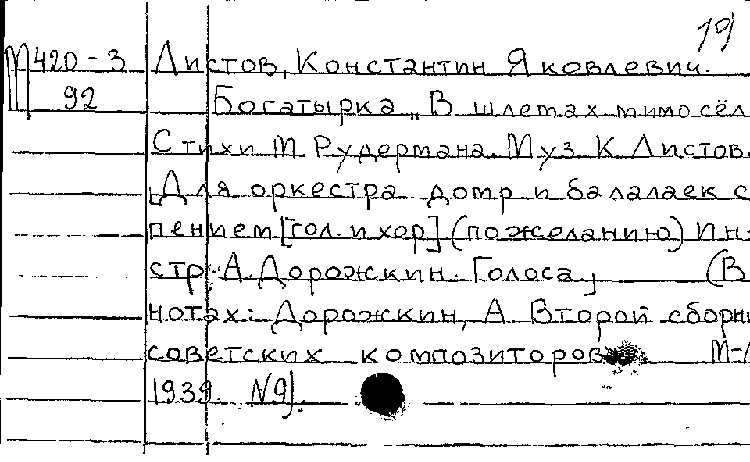 19
М420-3 Листов, Константин Яковлевич.
92 Богатырка „В шлетах мимо сёл
Стихи М Рудермана. Муз К Листов
[Для оркестра домр и балалаек с
пением [гол. и хор] (по желанию) Ин-
стр. А. Дорожкин. Голоса] (В
нотах: Дорожкин, А Второй сборни
советских композиторов М-Л
1939. N9).